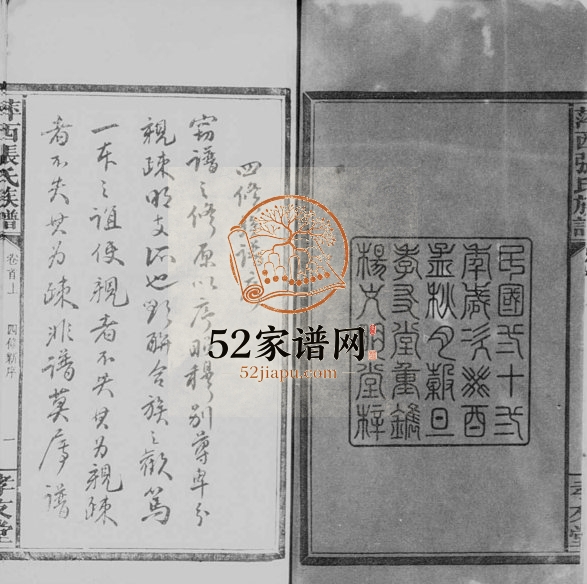 民國弍十弍
年歲次癸酉
孟秋之穀旦
孝友堂重鐫
楊文堂梓
四修譜序
竊譜之修原以序昭穆別尊卑分
親疎明支派也聯合族之歡篤
一本之誼使親者不失其為親疎
者不失其為疎非譜莫屬譜
萍西張氏族譜
卷首上
四修新序
一
孝友堂
52家谱网
52jiapu.com